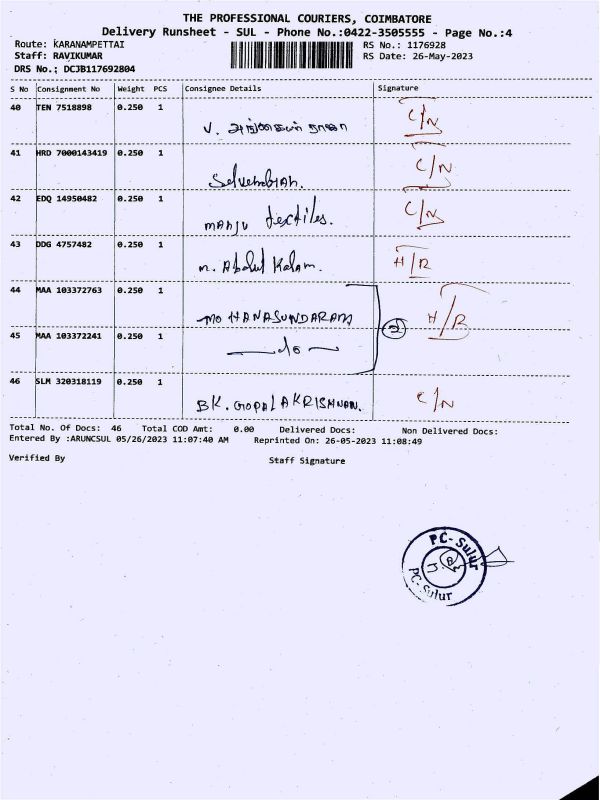 THE PROFESSIONAL COURIERS, COIMBATORE
Delivery Runsheet - SUL - Phone No.:0422-3505555 - Page No.:4
Route: KARANAMPETTAI RS No.: 1176928
Staff: RAVIKUMAR RS Date: 26-May-2023
DRS No.; DCJB117692804
S No Consignment No Weight PCS Consignee Details Signature
40 TEN 7518898 0.250 1 C/N
V.
41 HRD 7000143419 0.250 1 C/N
42 EDQ 14950482 0.250 1 C/N
manju textiles.
43 DDG 4757482 0.250 1 H/R
m. Abdul Kalam.
44 MAA 103372763 0.250 1 H/R
MOHANASUNDARAM
45 MAA 103372241 0.250 1 2
— do —
46 SLM 320318119 0.250 1 C/N
BK. GOPALAKRISHNAN.
Total No. Of Docs: 46 Total COD Amt: 0.00 Delivered Docs: Non Delivered Docs:
Entered By :ARUNCSUL 05/26/2023 11:07:40 AM Reprinted On: 26-05-2023 11:08:49
Verified By Staff Signature
PC-Sulur
PC-Sulur